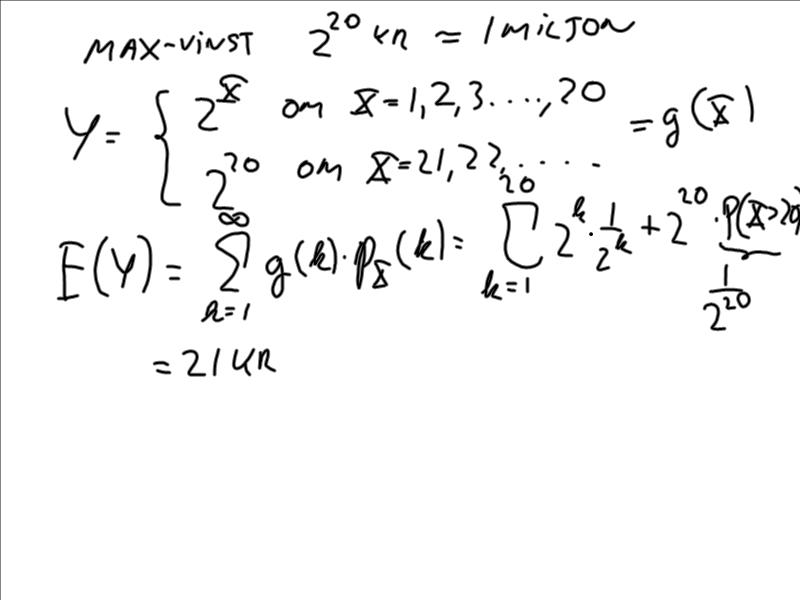 MAX-VINST 2^20 KR ≈ 1 MILJON
Y = { 2^X om X = 1, 2, 3 ...., 20
2^20 om X = 21, 22, .... = g(X)
E(Y) = ∑_{k=1}^{∞} g(k) · p_X(k) = ∑_{k=1}^{20} 2^k · 1/2^k + 2^20 · P(X>20)
1/2^20
= 21 KR